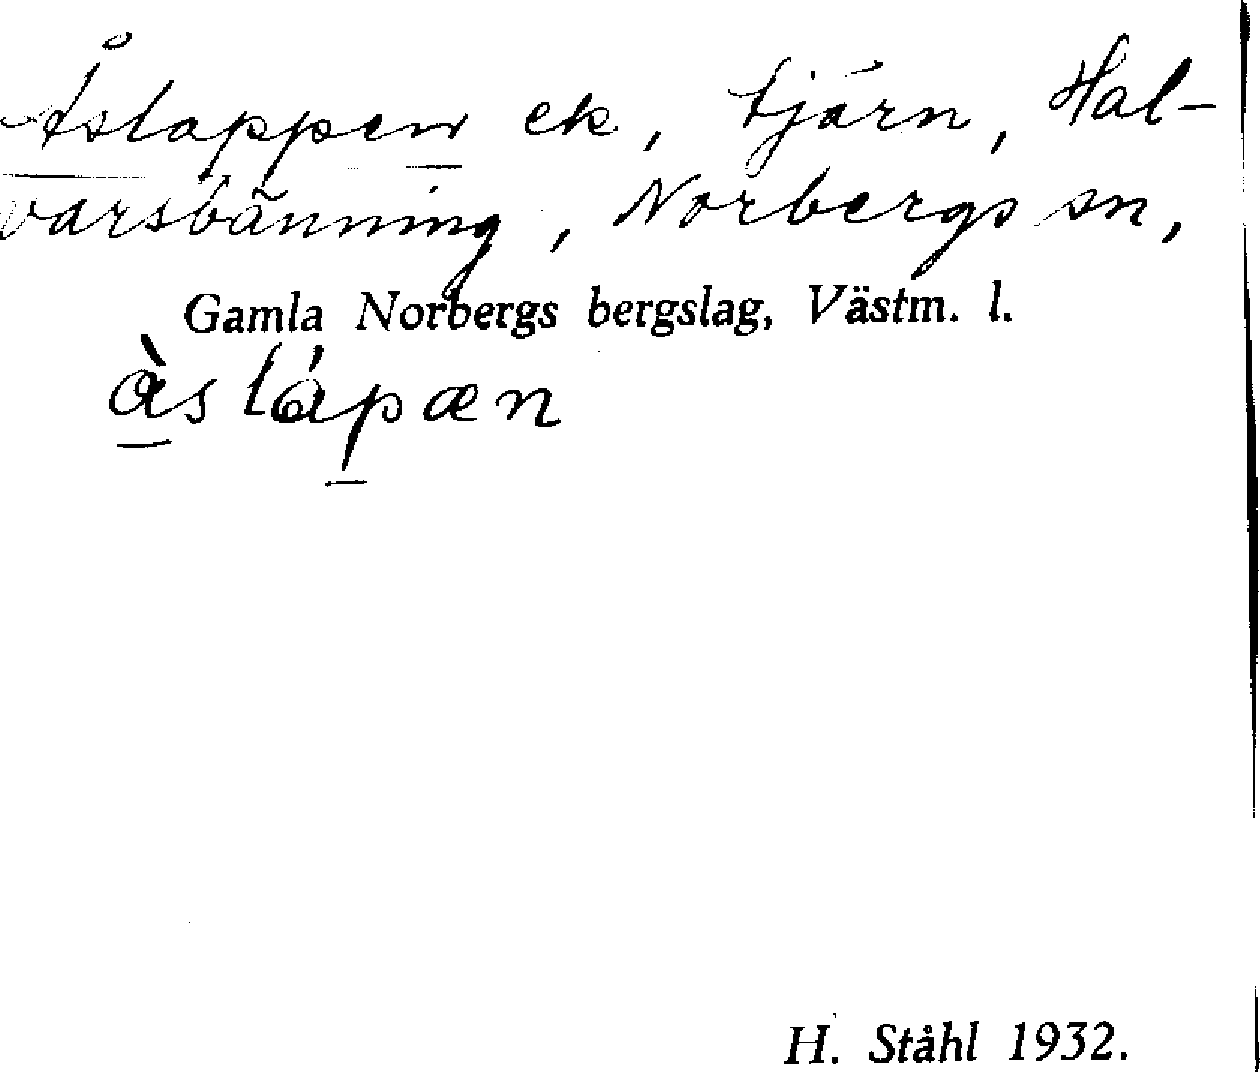 Åslappen ek, tjärn, Hal-
varsbänning, Norbergs sn,
Gamla Norbergs bergslag, Västm. l.
àslápæn
H. Ståhl 1932.